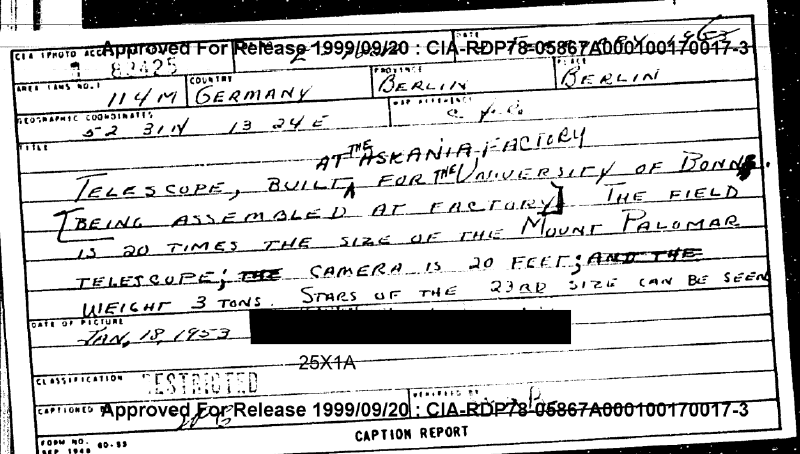 Approved For Release 1999/09/20 : CIA-RDP78-05867A000100170017-3
CIA (PHOTO ACC DATE 1953
83425
AREA (AMS NO.) COUNTRY PROVINCE PLACE
114M GERMANY BERLIN BERLIN
GEOGRAPHIC COORDINATES MAP REFERENCE
52 31N 13 24E
TITLE
AT THE ASKANIA FACTORY
TELESCOPE, BUILT FOR THE UNIVERSITY OF BONN.
[BEING ASSEMBLED AT FACTORY] THE FIELD
IS 20 TIMES THE SIZE OF THE MOUNT PALOMAR
TELESCOPE; THE CAMERA IS 20 FEET; AND THE
WEIGHT 3 TONS. STARS OF THE 23RD SIZE CAN BE SEEN
DATE OF PICTURE
JAN, 18, 1953
25X1A
CLASSIFICATION RESTRICTED
CAPTIONED VERIFIED BY
Approved For Release 1999/09/20 : CIA-RDP78-05867A000100170017-3
FORM NO. 60-55
SEP 1948
CAPTION REPORT